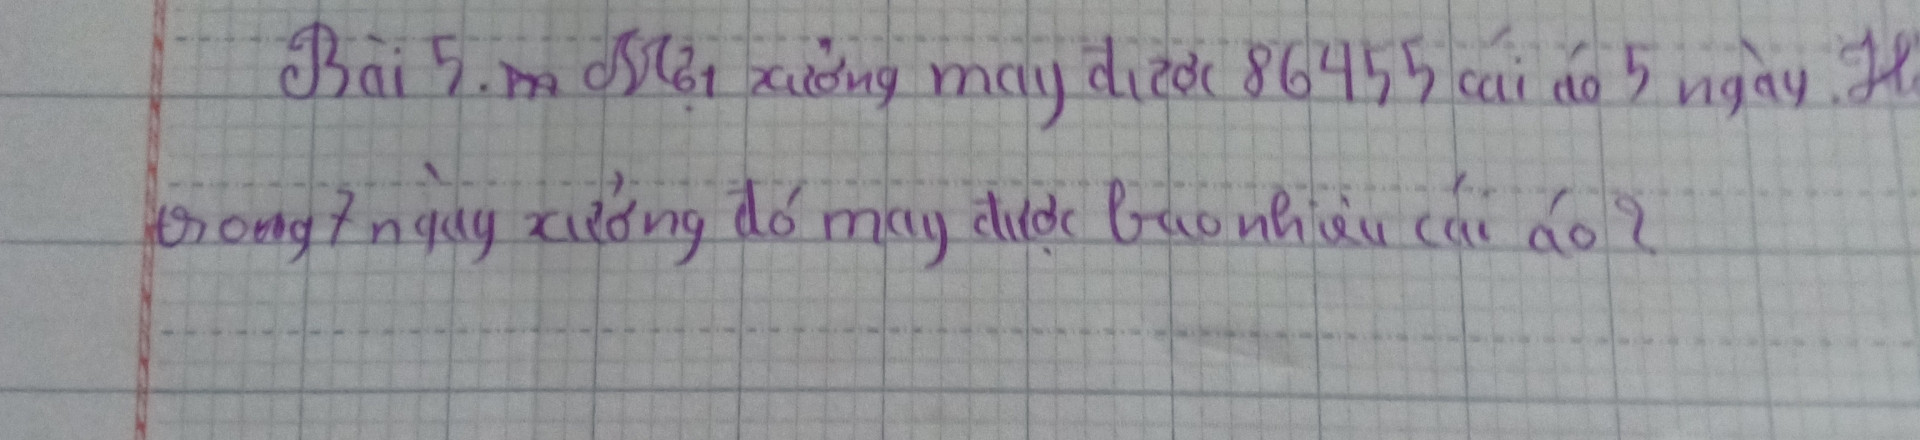 Bài 5. Một xưởng may được 86455 cái áo 5 ngày. H
trong 7 ngày xưởng đó may được bao nhiêu cái áo?